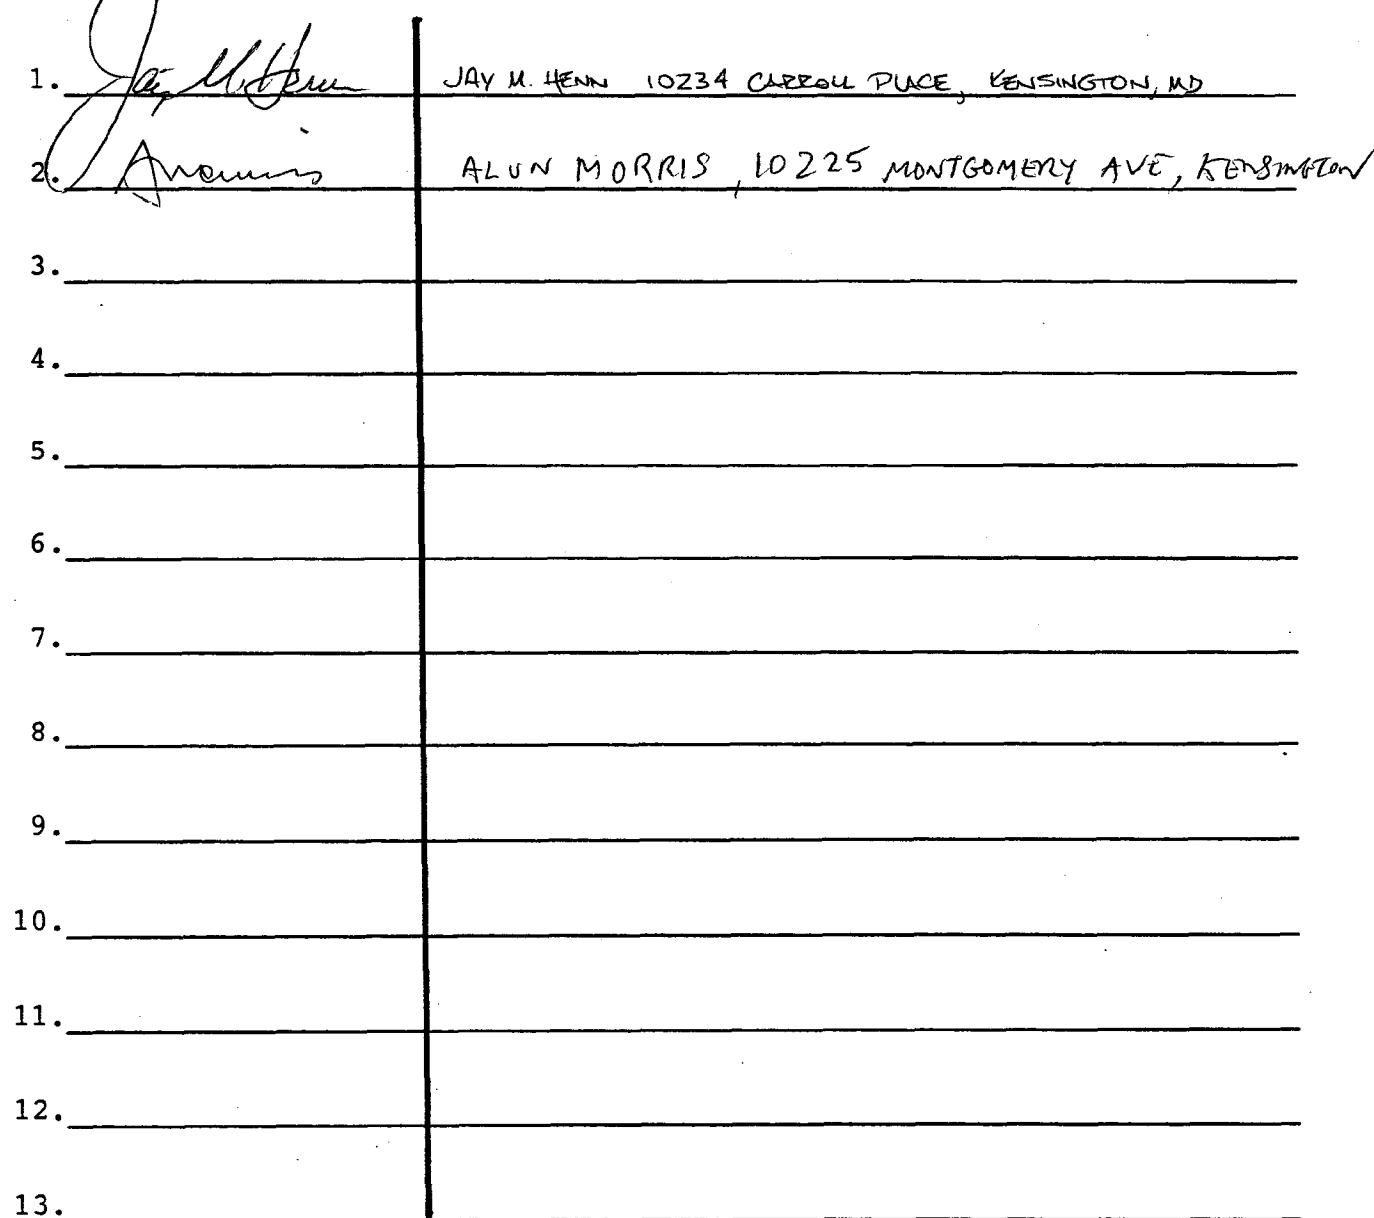 1. Jay M. Henn JAY M. HENN 10234 CARROLL PLACE, KENSINGTON, MD
2. AMorris ALUN MORRIS, 10225 MONTGOMERY AVE, KENSINGTON
3.
4.
5.
6.
7.
8.
9.
10.
11.
12.
13.